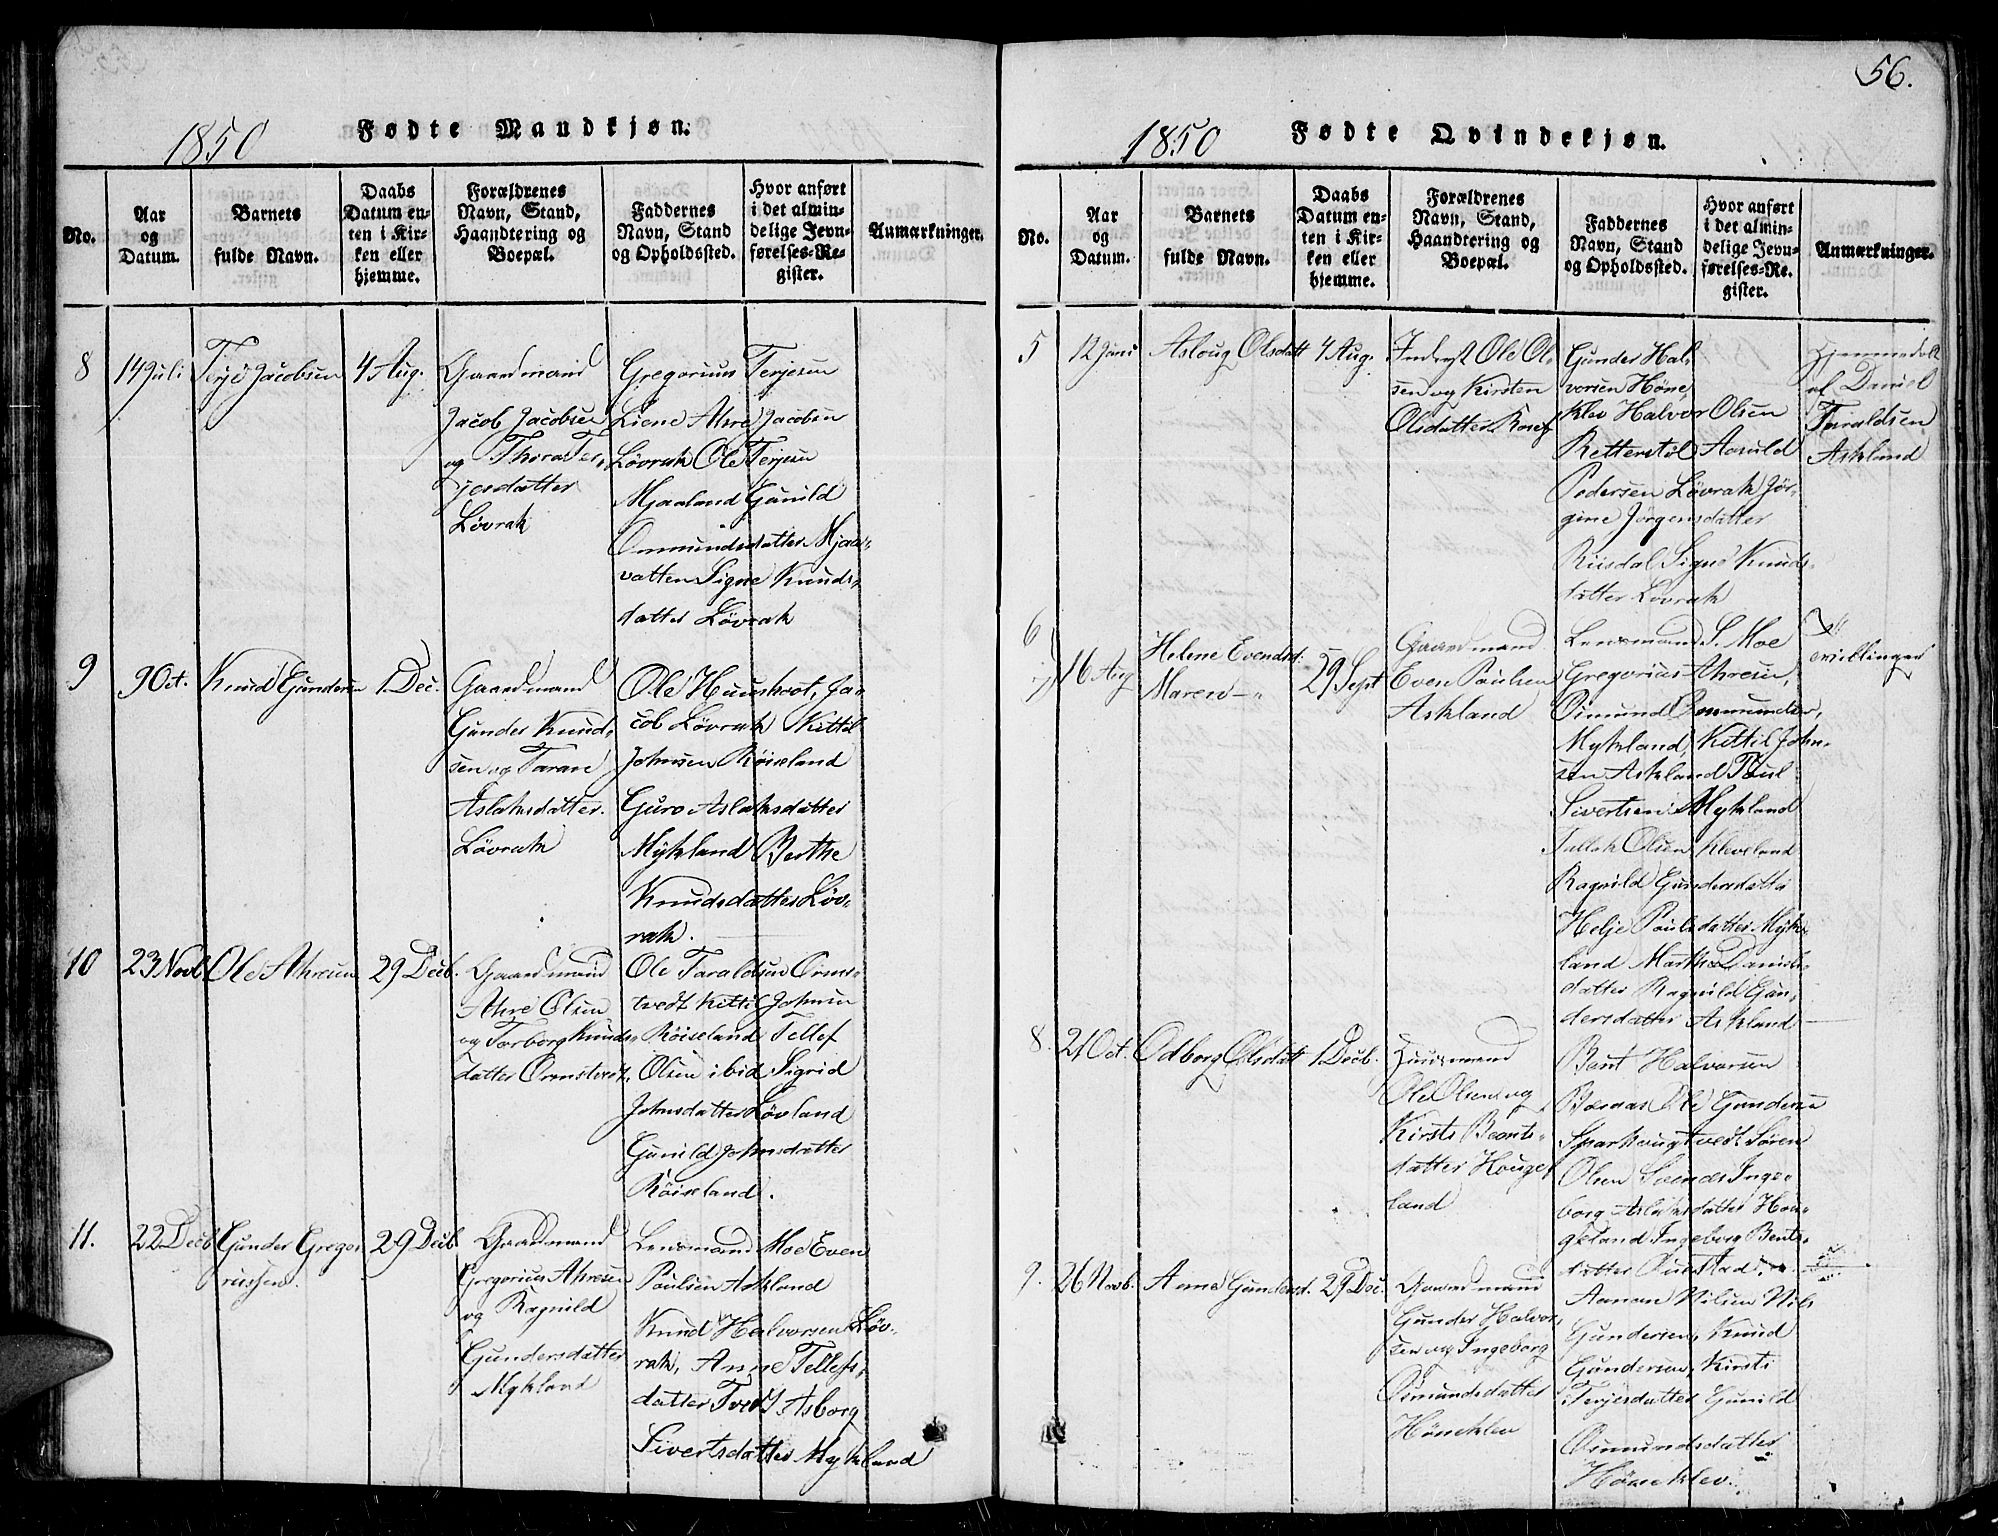 56.
1850 Fødte Mandkjøn.
No.
Aar
og
Datum.
Barnets
fulde Navn.
Daabs
Datum en-
ten i Kir-
ken eller
hjemme.
Forældrenes
Navn, Stand,
Haandtering og
Boepæl.
Faddernes
Navn, Stand
og Opholdssted.
Hvor anført
i det almin-
delige Jevn-
førelses-Re-
gister.
Anmærkninger.
8
14 Juli
Terje Jacobsen
4 Aug.
Gaardmand
Jacob Jacobsen
og Thora Ter-
jesdatter
Løvrak
Gregorius Terjesen
Liene Ahre Jacobsen
Løvrak Ole Terjesen
Mjaaland Gunild
Ommundsdatter Mjaa-
vatten Signe Knuds-
datter Løvrak
9
9 Oct.
Knud Gundersen
1 Dec.
Gaardmand
Gunder Knud-
sen og Tarane
Aslaksdatter
Løvrak
Ole Huuskvot, Ja-
cob Løvrak Kittil
Johnsen Røiseland
Guro Aslaksdatter
Mykland Berthe
Knudsdatter Løv-
rak.
10
23 Novb
Ole Ahresen
29 Decb.
Gaardmand
Ahre Olsen
og Torborg Knuds-
datter Ormstvedt
Ole Taraldsen Orms-
tvedt Kittil Johnsen
Røiseland Tellef
Olsen ibid Sigrid
Johnsdatter Løvland
Gunild Johnsdatter
Røiseland.
11.
22 Decb
Gunder Gregor
russen.
29 Decb.
Gaardmand
Gregorius Ahresen
og Ragnild
Gundersdatter
Mykland
Lensmand Moe Even
Poulsen Askland
Knud Halvorsen Løv-
rak, Anne Tellefs-
datter Tvedt Asborg
Sivertsdatter Mykland
1850 Fødte Qvindekjøn.
No.
Aar
og
Datum.
Barnets
fulde Navn.
Daabs
Datum en-
ten i Kir-
ken eller
hjemme.
Forældrenes
Navn, Stand,
Haandtering og
Boepæl.
Faddernes
Navn, Stand
og Opholdssted.
Hvor anført
i det almin-
delige Jevn-
førelses-Re-
gister.
Anmærkninger.
5
12 Juni
Asloug Olsdatt
4 Aug.
Inderst Ole Ol-
sen og Kirsten
Olsdatter
Gunder Hal-
vorsen Høne-
klev Halvor Olsen
Retterstøl Aasuld
Pedersen Løvrak Jør-
gine Jørgensdatter
Riisdal Signe Knuds-
datter Løvrak
Hjemmedøbt
af Daniel
Taraldsen
Askland
6
7
16 Aug
Helene Evendst.
Maren -"
29 Sept
Gaardmand
Even Poulsen
Askland
Lensmand S. Moe
Gregorius Ahresen,
Osmund Ommundsen,
Mykland, Kittil John-
sen Askland Poul
Sivertsen Mykland
Tallak Olsen Kleveland
Ragnild Gundersdatter
Helje Poulsdatter Myk-
land Marthe Daniels-
datter Ragnild Gun-
dersdatter Askland
Tvillinger
8.
21 Oct.
Odborg Olsdatt
1 Decb.
Huusmand
Ole Olsen og
Kirsti Beents-
datter Houge-
land
Bent Halvorsen
Ole Gundersen
Sparhougtvedt Søren
Olsen Inge-
borg Aslaksdatter Hou-
geland Ingeborg Bents-
datter
9.
26 Novb.
Anne Gundersd.
29 Dec.
Gaardmand
Gunder Halvor-
sen og Ingeborg
Osmundsdatter
Høneklev
Aanon Nilsen Nils
Gundersen, Knud
Gundersen, Kirsti
Terjesdatter Gunild
Osmundsdatter
Høneklev.